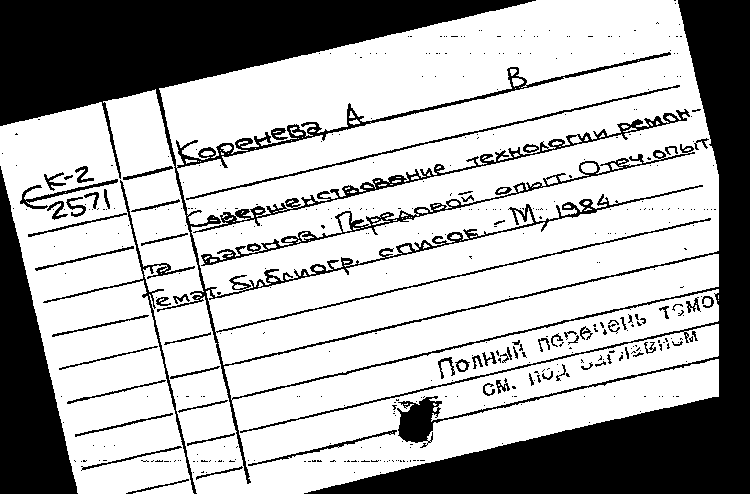 Коренева, А В
К-2
2571
Совершенствование технологии ремон-
та вагонов: Передовой опыт. Отеч. опыт.
Темат. библиогр. список. - М., 1984.
Полный перечень томов
см. под заглавном